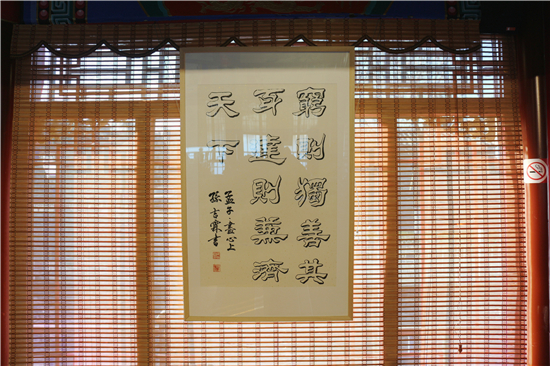 窮則獨善其
身達則兼濟
天下
孟子·盡心上
孫霖書